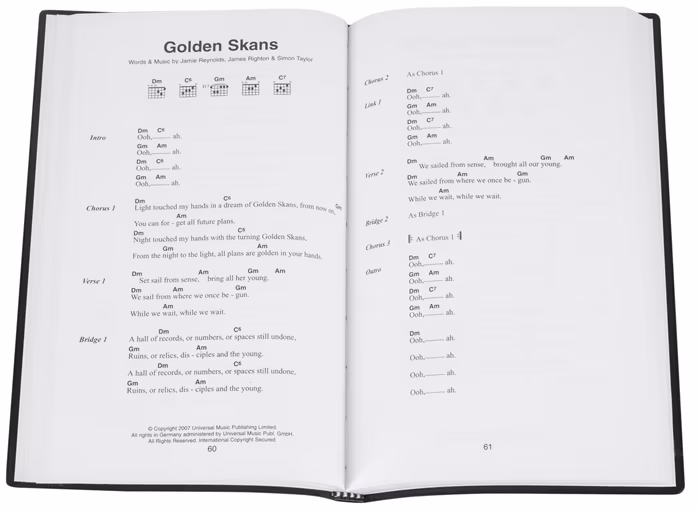 Golden Skans
Words & Music by Jamie Reynolds, James Righton & Simon Taylor
Dm C6 Gm Am C7
Dm C6
Intro Ooh, ah.
Gm Am
Ooh, ah.
Dm C6
Ooh, ah.
Gm Am
Ooh, ah.
Dm C6
Chorus 1 Light touched my hands in a dream of Golden Skans, from now on,
Gm
Am
You can for - get all future plans.
Dm C6
Night touched my hands with the turning Golden Skans,
Gm Am
From the night to the light, all plans are golden in your hands.
Dm Am Gm Am
Verse 1 Set sail from sense, bring all her young.
Dm Am Gm
We sail from where we once be - gun.
Am
While we wait, while we wait.
Dm C6
Bridge 1 A hall of records, or numbers, or spaces still undone,
Gm Am
Ruins, or relics, dis - ciples and the young.
Dm C6
A hall of records, or numbers, or spaces still undone,
Gm Am
Ruins, or relics, dis - ciples and the young.
© Copyright 2007 Universal Music Publishing Limited.
All rights in Germany administered by Universal Music Publ. GmbH.
All Rights Reserved. International Copyright Secured.
60
Chorus 2 As Chorus 1
Dm C7
Link 1 Ooh, ah.
Gm Am
Ooh, ah.
Dm C7
Ooh, ah.
Gm Am
Ooh, ah.
Dm Am Gm Am
Verse 2 We sailed from sense, brought all our young.
Dm Am Gm
We sailed from where we once be - gun.
Am
While we wait, while we wait.
Bridge 2 As Bridge 1
Chorus 3 As Chorus 1
Dm C7
Outro Ooh, ah.
Gm Am
Ooh, ah.
Dm C7
Ooh, ah.
Gm Am
Ooh, ah.
Dm
Ooh, ah.
Ooh, ah.
Ooh, ah.
Ooh, ah.
61